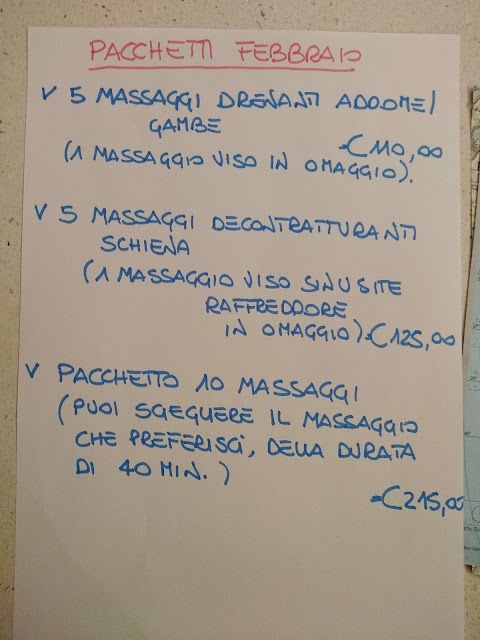 PACCHETTI FEBBRAIO
V 5 MASSAGGI DRENANTI ADDOME/
GAMBE
€110,00
(1 MASSAGGIO VISO IN OMAGGIO).
V 5 MASSAGGI DECONTRATTURANTI
SCHIENA
(1 MASSAGGIO VISO SINUSITE
RAFFREDDORE
IN OMAGGIO) €125,00
V PACCHETTO 10 MASSAGGI
(PUOI SCEGLIERE IL MASSAGGIO
CHE PREFERISCI, DELLA DURATA
DI 40 MIN.)
€215,00